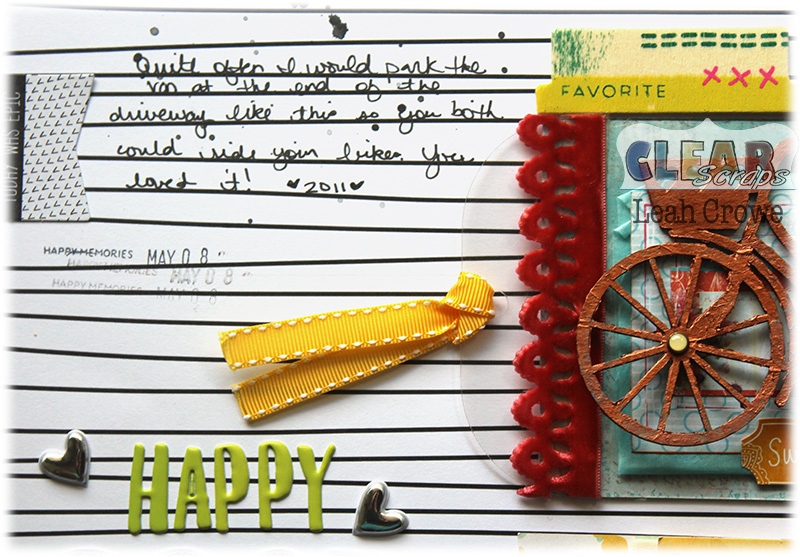 Quite often I would park the
van at the end of the
driveway like this so you both
could ride your bikes. You
loved it! ♥2011♥
TODAY WAS EPIC
HAPPY MEMORIES MAY 08
HAPPY MEMORIES MAY 08
HAPPY MEMORIES MAY 08
HAPPY
FAVORITE
XXX
CLEAR
Scraps
Leah Crowe